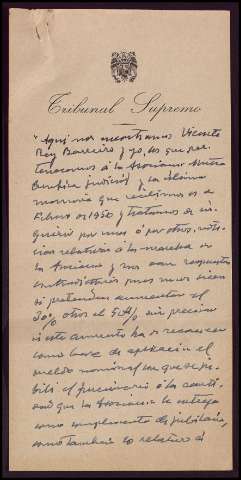 Tribunal Supremo
"Aquí nos encontramos Vicente
Rey Barreiro y yo, los que per
tenecemos á la Asociacion Mutuo
Benéfica judicial y la última
memoria que recibimos es de
Febrero de 1950 y tratamos de in
quirir por unos ó por otros, noti
cias relativas á la marcha de
la Asociacion y nos dan respuestas
contradictorias pues unos dicen
si pretenden aumentar el
30% otros el 50% sin precisar
si este aumento ha de
como base de aplicación el
sueldo nominal en que se ju
biló el funcionario ó la canti
dad que la Asociacion le entrega
como complemento de jubilación,
como tambien lo relativo á